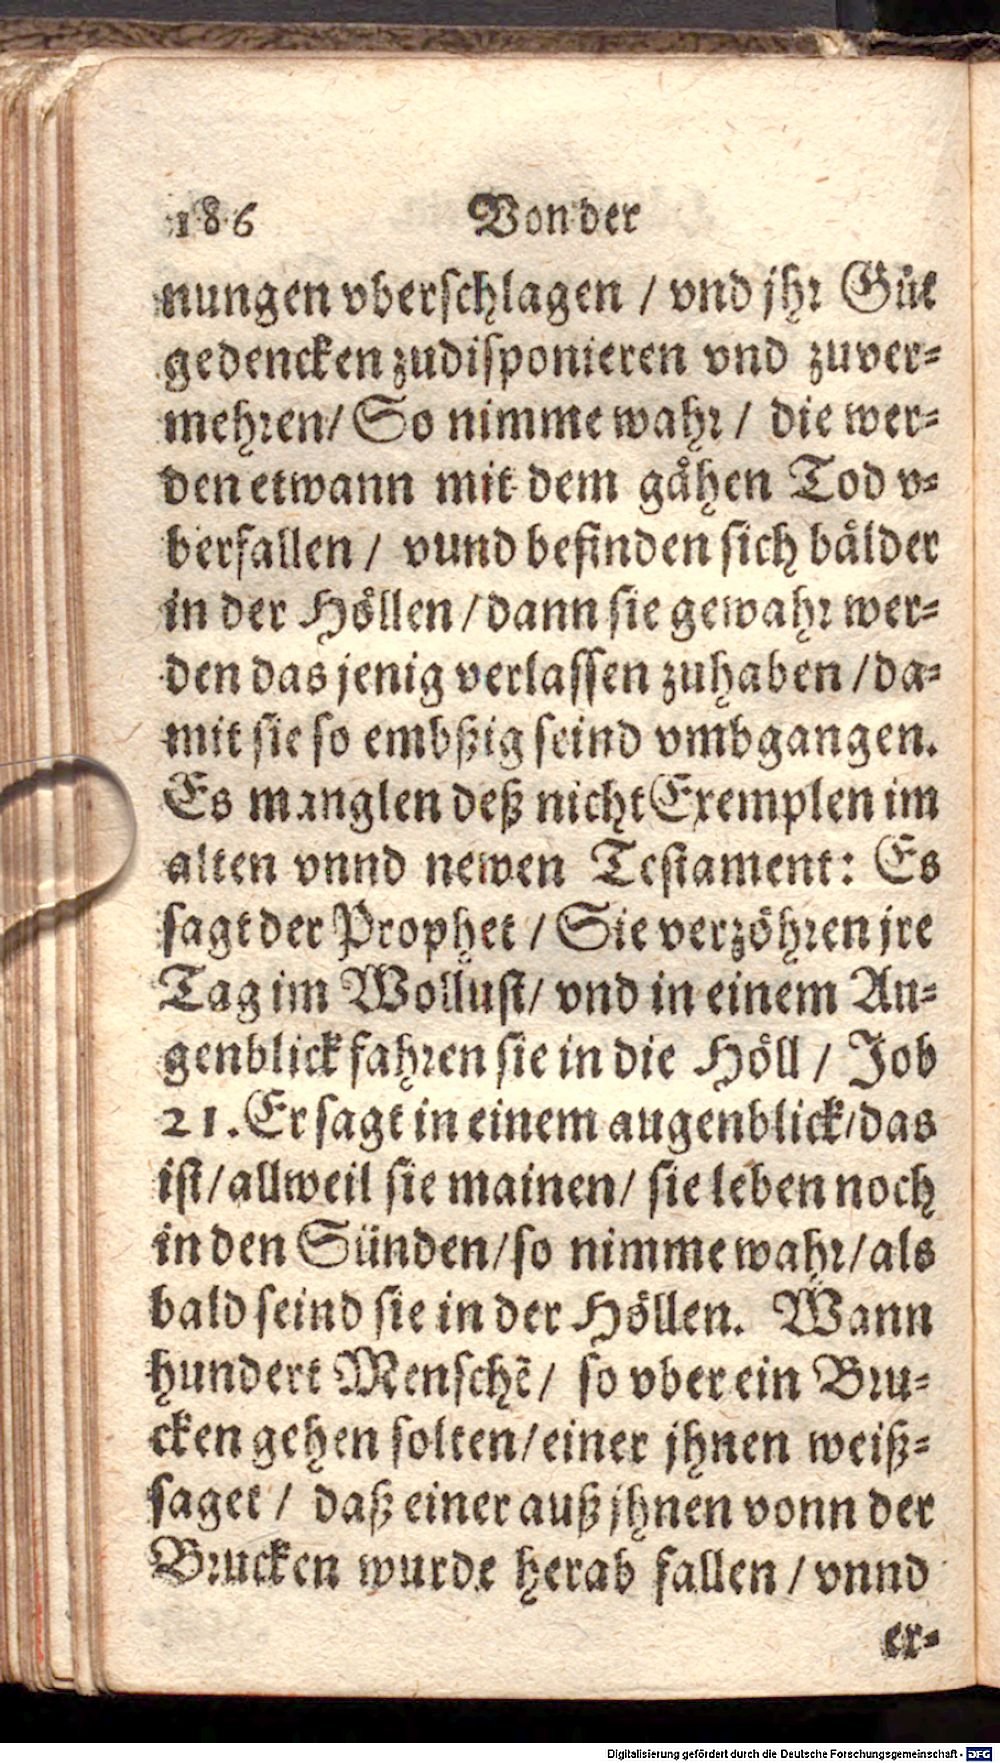 186 Von der
nungen vberschlagen / vnd jhr Güt
gedencken zudisponieren vnd zuver-
mehren/ So nimme wahr / die wer-
den etwann mit dem gåhen Tod v-
berfallen / vund befinden sich bålder
in der Höllen / dann sie gewahr wer-
den das jenig verlassen zuhaben / da-
mit sie so embßig seind vmbgangen.
Es manglen deß nicht Exemplen im
alten vnnd newen Testament: Es
sagt der Prophet / Sie verzöhren jre
Tag im Wollust/ vnd in einem Au-
genblick fahren sie in die Höll / Job
21. Er sagt in einem augenblick/das
ist/ allweil sie mainen/ sie leben noch
in den Sünden/so nimme wahr/als
bald seind sie in der Höllen. Wann
hundert Menschē/ so vber ein Bru-
cken gehen solten/einer jhnen weiß-
saget / daß einer auß jhnen vonn der
Brucken wurde herab fallen / vnnd
er-
Digitalisierung gefördert durch die Deutsche Forschungsgemeinschaft - DFG